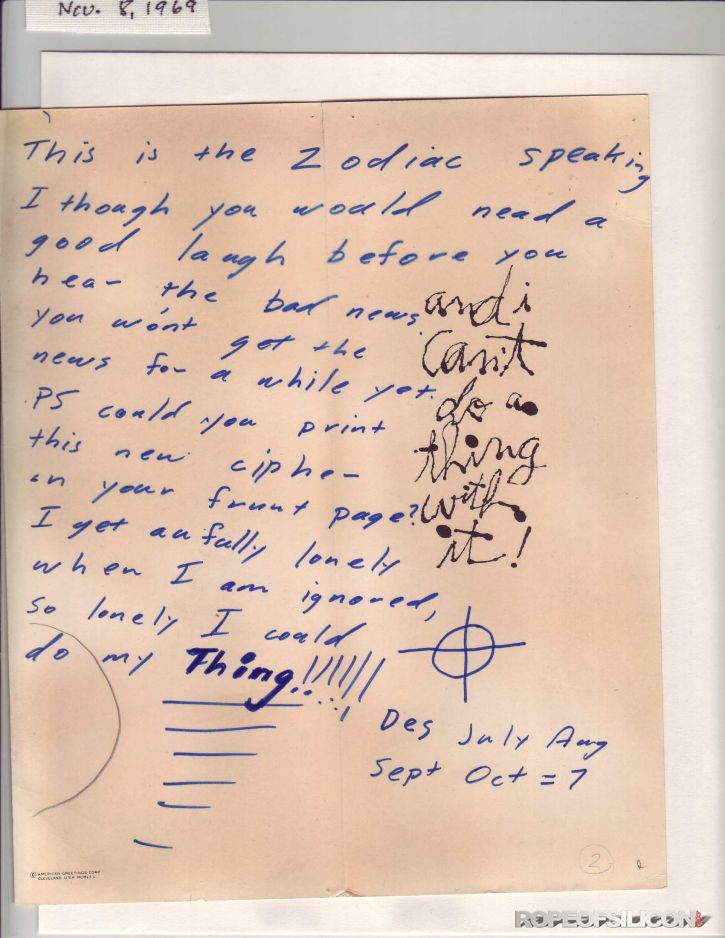 Nov. 8, 1969
This is the Zodiac speaking
I though you would nead a
good laugh before you
hear the bad news
you won't get the
news for a while yet.
PS could you print
this new cipher
in your frunt page?
I get aufully lonely
when I am ignored,
so lonely I could
do my Thing!!!!!!
and i
Can't
do a
thing
with
it!
Des July Aug
Sept Oct = 7
© AMERICAN GREETINGS CORP.
CLEVELAND, U.S.A.
2
ROPEOFSILICON